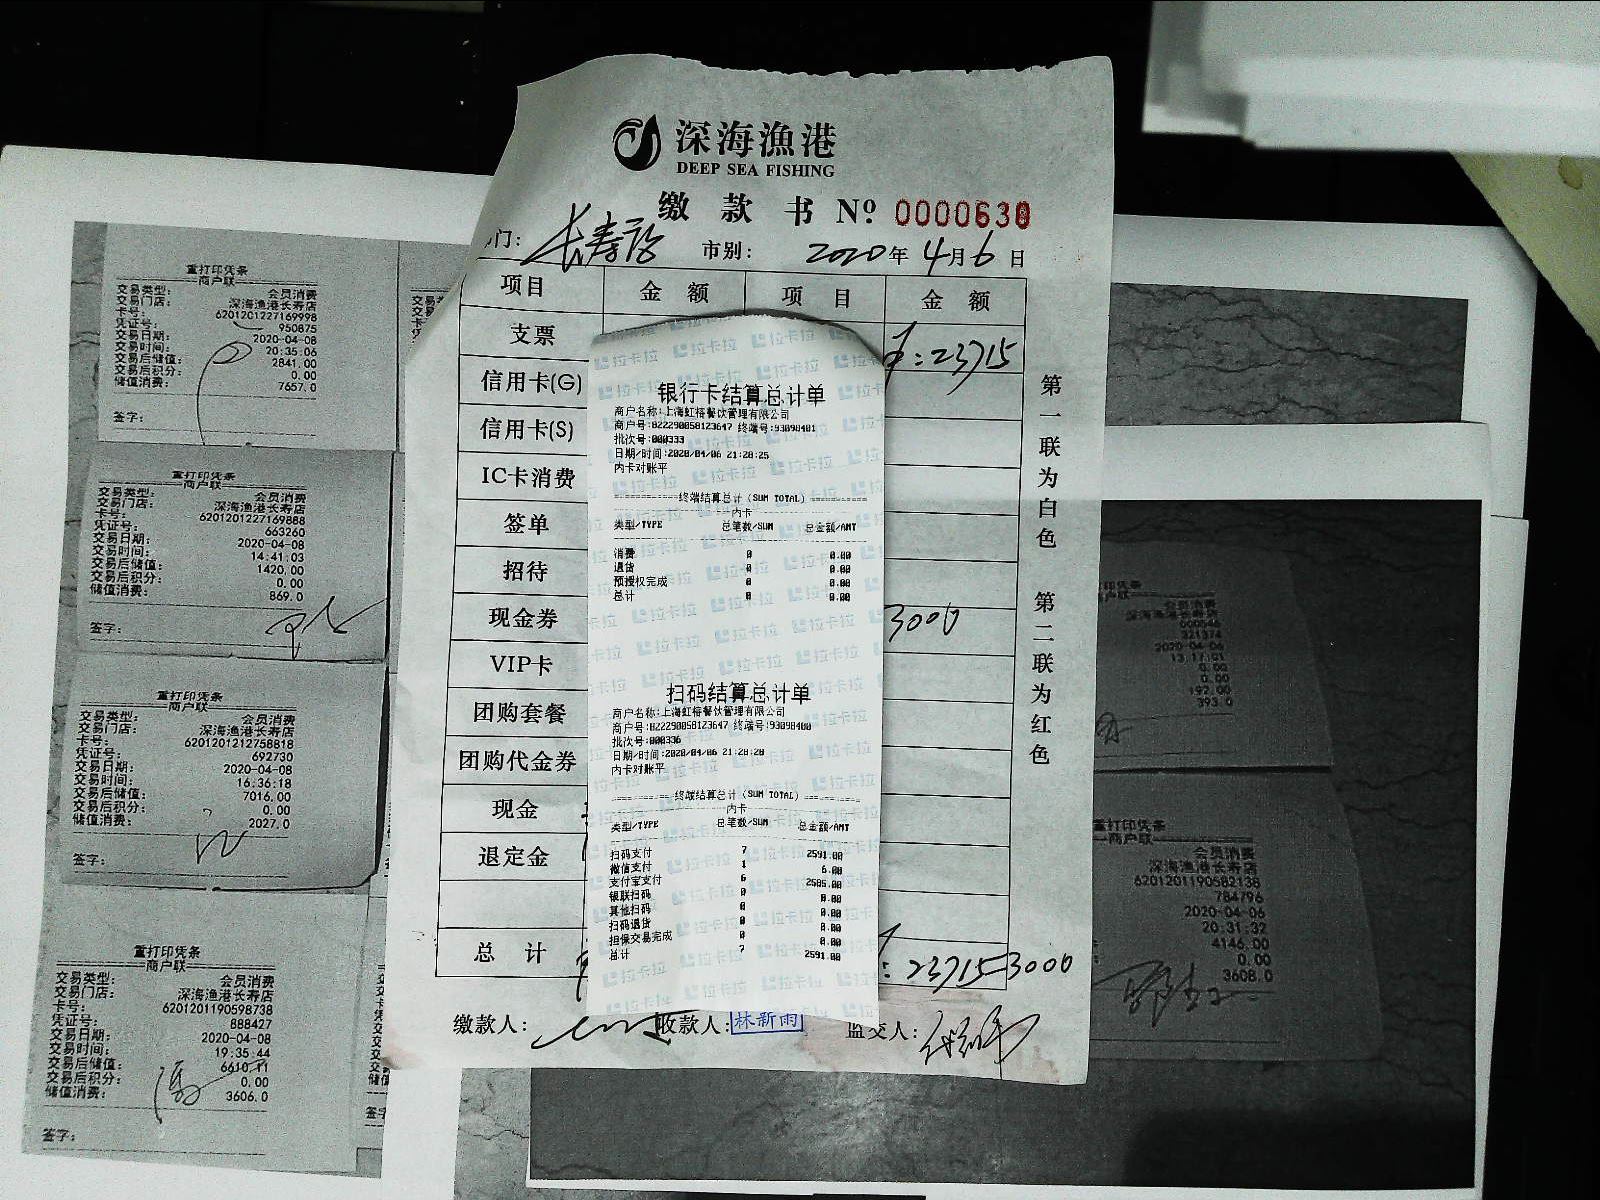 深海漁港
DEEP SEA FISHING
缴款书 Nº 0000630
门: 长寿路 市别: 2020年4月6日
项目 金额 项目 金额
支票 : 23715
信用卡(G)
信用卡(S)
IC卡消费
签单
招待
现金券 3000
VIP卡
团购套餐
团购代金券
现金
退定金
总计 : 23715 3000
缴款人: 收款人: 林新雨 监交人:
第一联为白色 第二联为红色
银行卡结算总计单
商户名称:上海虹榕餐饮管理有限公司
商户号:822290058123647 终端号:93098401
批次号:000333
日期/时间:2020/04/06 21:28:25
内卡对账平
终端结算总计(SUM TOTAL)
内卡
类型/TYPE 总笔数/SUM 总金额/AMT
消费 0 0.00
退货 0 0.00
预授权完成 0 0.00
总计 0 0.00
扫码结算总计单
商户名称:上海虹榕餐饮管理有限公司
商户号:822290058123647 终端号:93098400
批次号:000336
日期/时间:2020/04/06 21:28:20
内卡对账平
终端结算总计(SUM TOTAL)
内卡
类型/TYPE 总笔数/SUM 总金额/AMT
扫码支付 7 2591.00
微信支付 1 6.00
支付宝支付 6 2585.00
银联扫码 0 0.00
其他扫码 0 0.00
扫码退货 0 0.00
担保交易完成 0 0.00
总计 7 2591.00
重打印凭条
商户联
交易类型: 会员消费
交易门店: 深海渔港长寿店
卡号: 6201201227169998
凭证号: 950875
交易日期: 2020-04-08
交易时间: 20:35:06
交易后储值: 2841.00
交易后积分: 0.00
储值消费: 7657.0
签字:
重打印凭条
商户联
交易类型: 会员消费
交易门店: 深海渔港长寿店
卡号: 6201201227169888
凭证号: 663260
交易日期: 2020-04-08
交易时间: 14:41:03
交易后储值: 1420.00
交易后积分: 0.00
储值消费: 869.0
签字:
重打印凭条
商户联
交易类型: 会员消费
交易门店: 深海渔港长寿店
卡号: 6201201212758818
凭证号: 692730
交易日期: 2020-04-08
交易时间: 16:36:18
交易后储值: 7016.00
交易后积分: 0.00
储值消费: 2027.0
签字:
重打印凭条
商户联
交易类型: 会员消费
交易门店: 深海渔港长寿店
卡号: 6201201190598738
凭证号: 888427
交易日期: 2020-04-08
交易时间: 19:35:44
交易后储值: 6610.11
交易后积分: 0.00
储值消费: 3606.0
签字:
会员消费
深海渔港长寿店
000546
321374
2020-04-06
13:17:01
0.00
0.00
192.00
393.0
重打印凭条
商户联
会员消费
深海渔港长寿店
6201201190582138
784796
2020-04-06
20:31:32
4146.00
0.00
3608.0